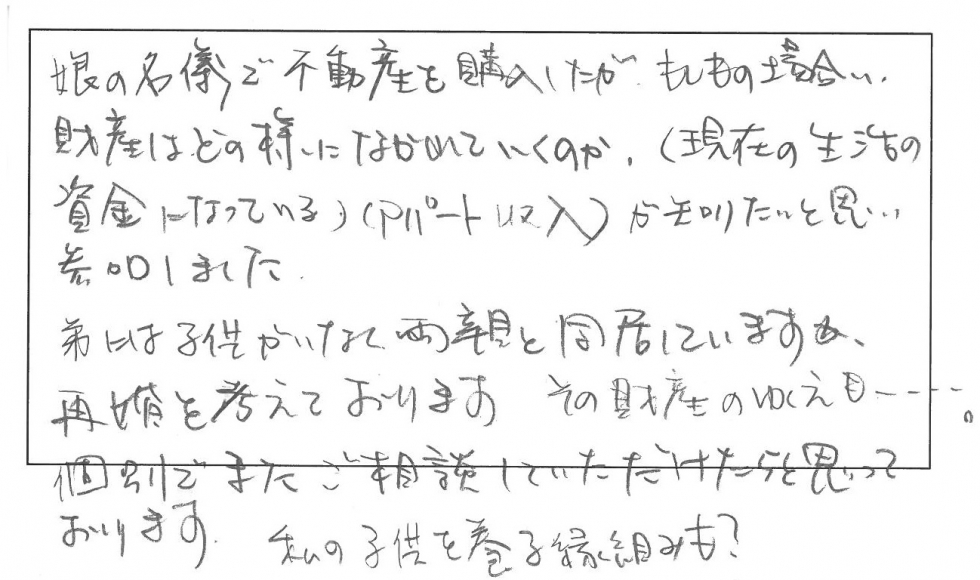 娘の名儀で不動産を購入したが もしもの場合い、
財産はどの様になかれていくのか、(現在の生活の
資金になっている)(アパート収入)が知りたいと思い
参加しました。
弟には子供がいなく 両親と同居していますが、
再婚を考えております その財産のゆくえも----。
個別でまたご相談していただけたらと思って
おります。 私の子供を養子縁組みも?